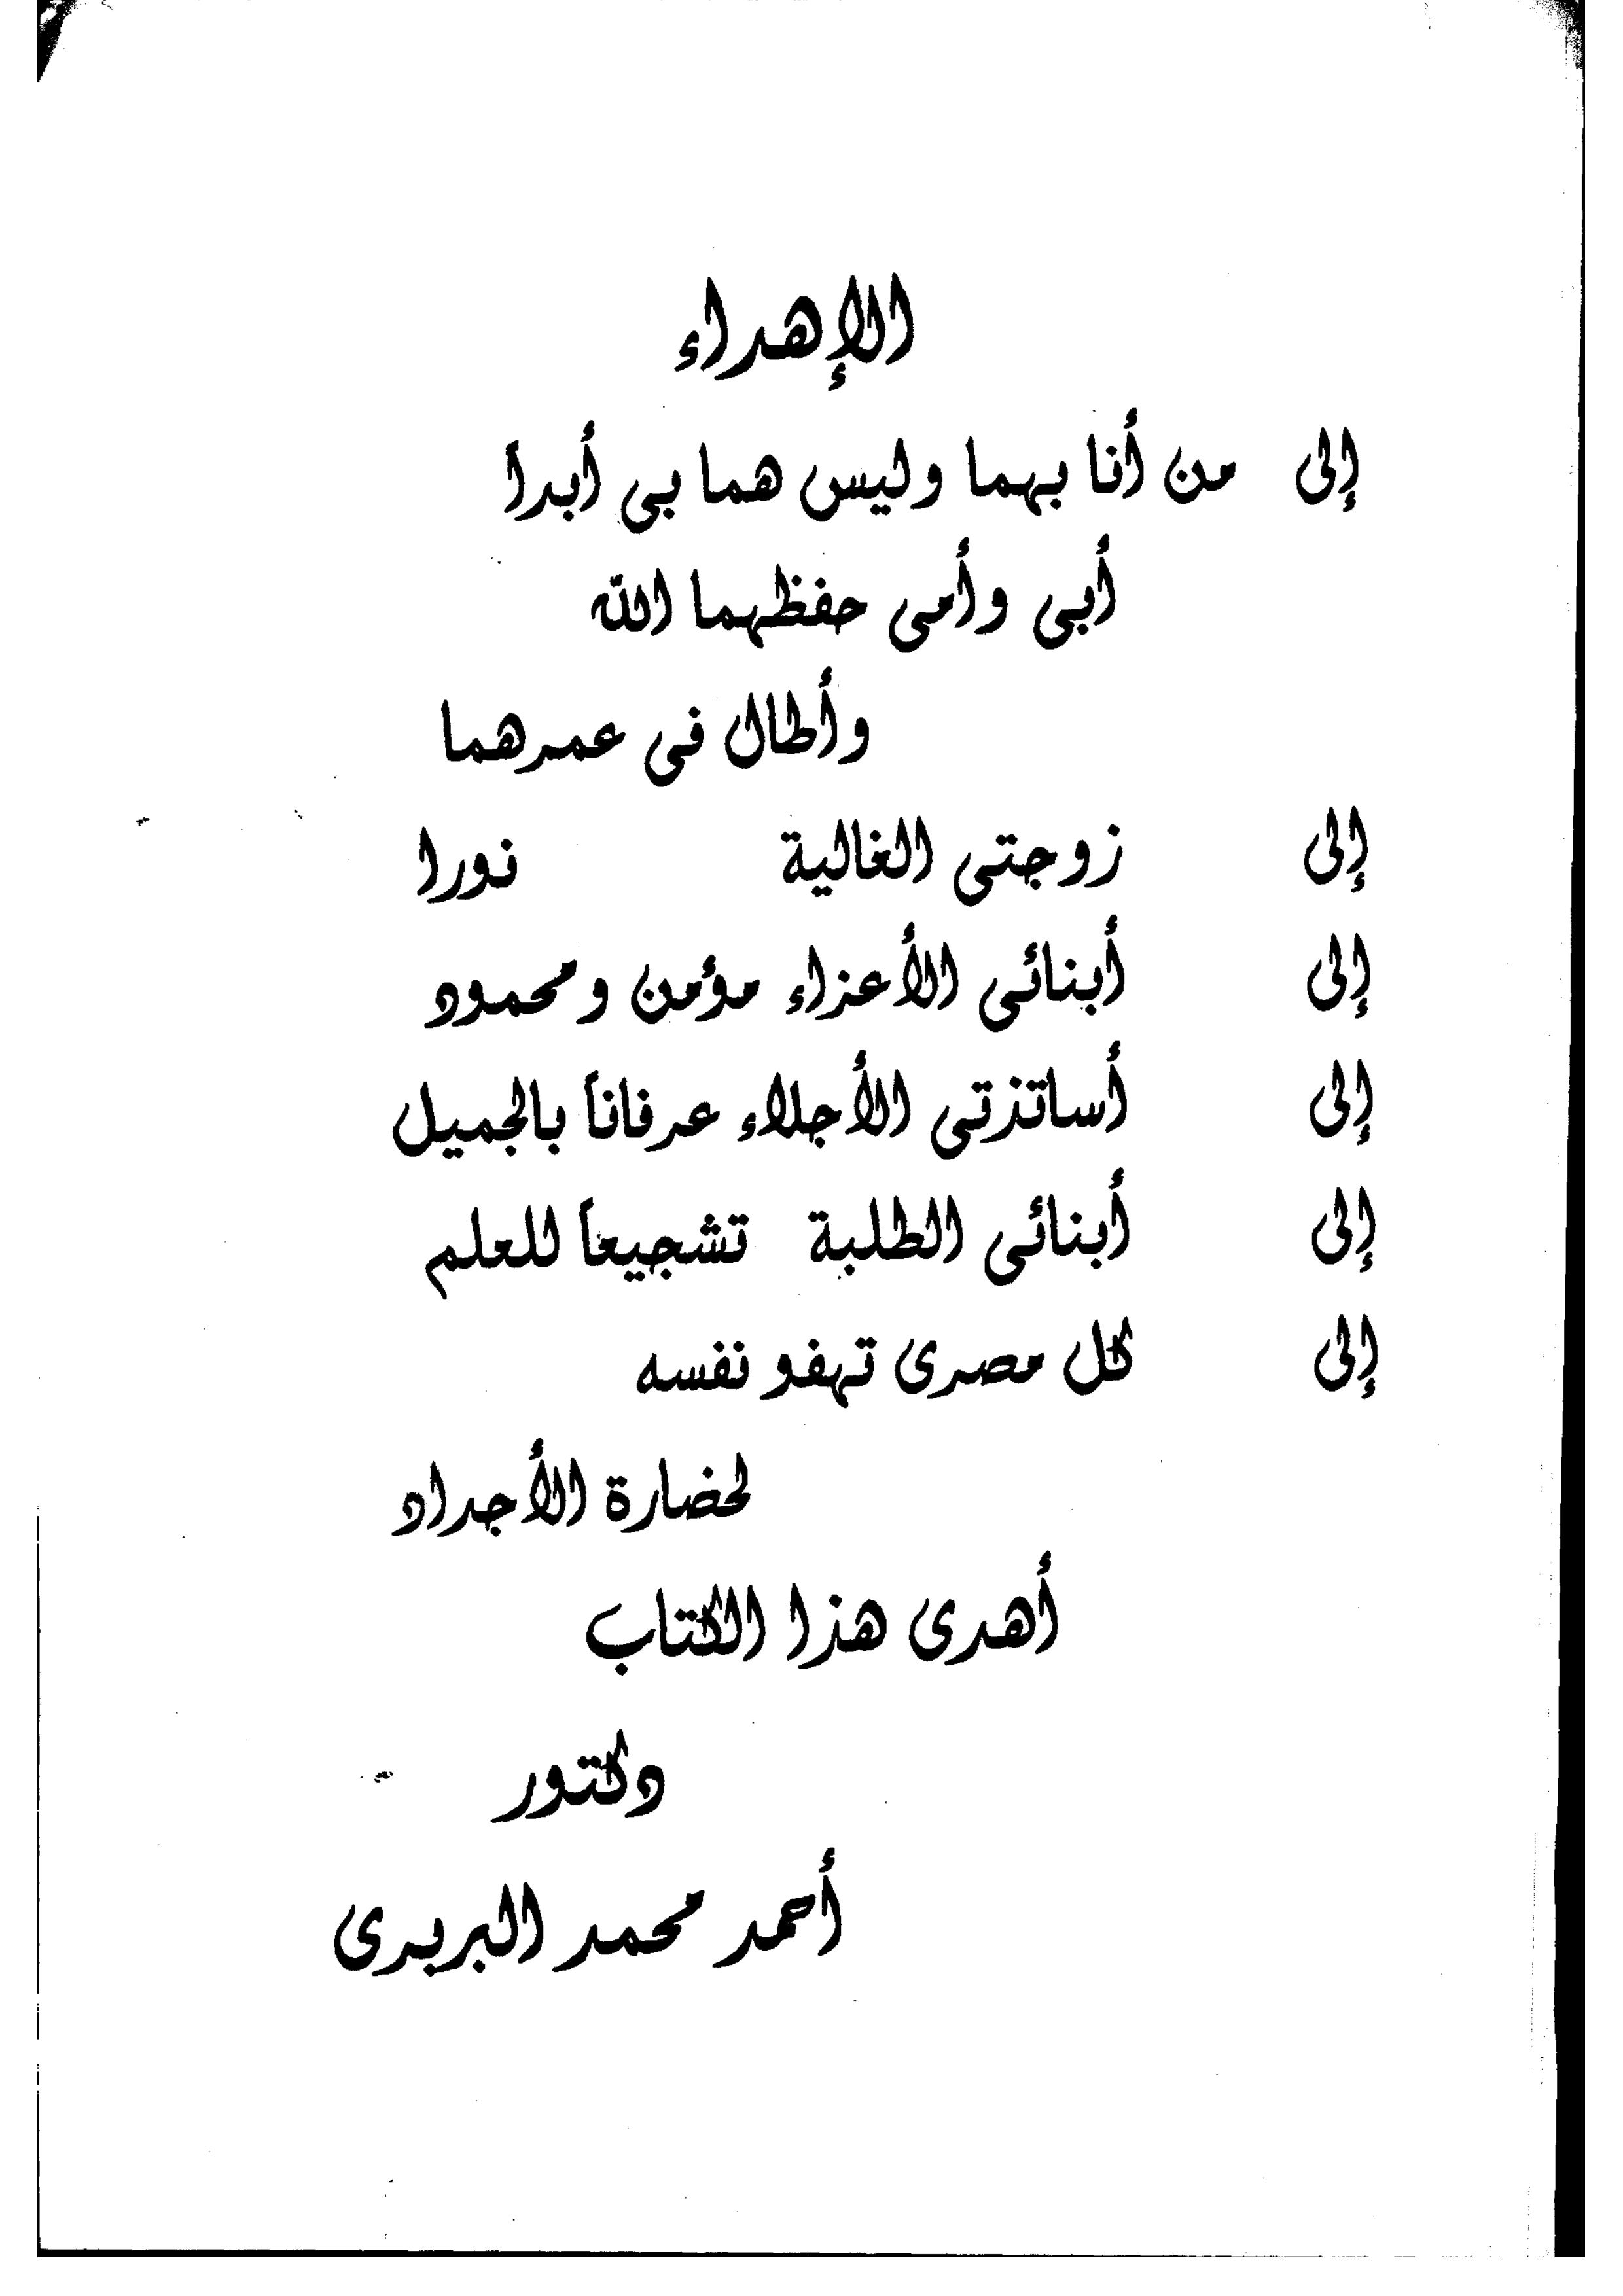 الإهداء
إلى من أنا بهما وليس هما بى أبداً
أبى وأمى حفظهما الله
وأطال فى عمرهما
إلى زوجتى الغالية نورا
إلى أبنائى الأعزاء مؤمن ومحمود
إلى أساتذتى الأجلاء عرفاناً بالجميل
إلى أبنائى الطلبة تشجيعاً للعلم
إلى كل مصرى تهفو نفسه
لحضارة الأجداد
أهدى هذا الكتاب
دكتور
أحمد محمد البربرى